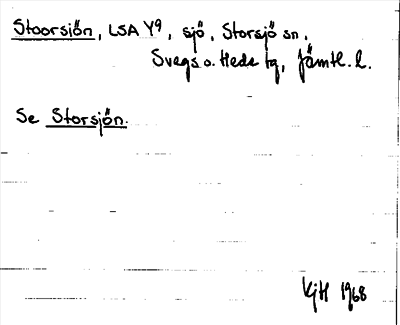 Stoorsiön, LSA Y9, sjö, Storsjö sn,
Svegs o. Hede tg, Jämtl. l.
Se Storsjön.
KjH 1968